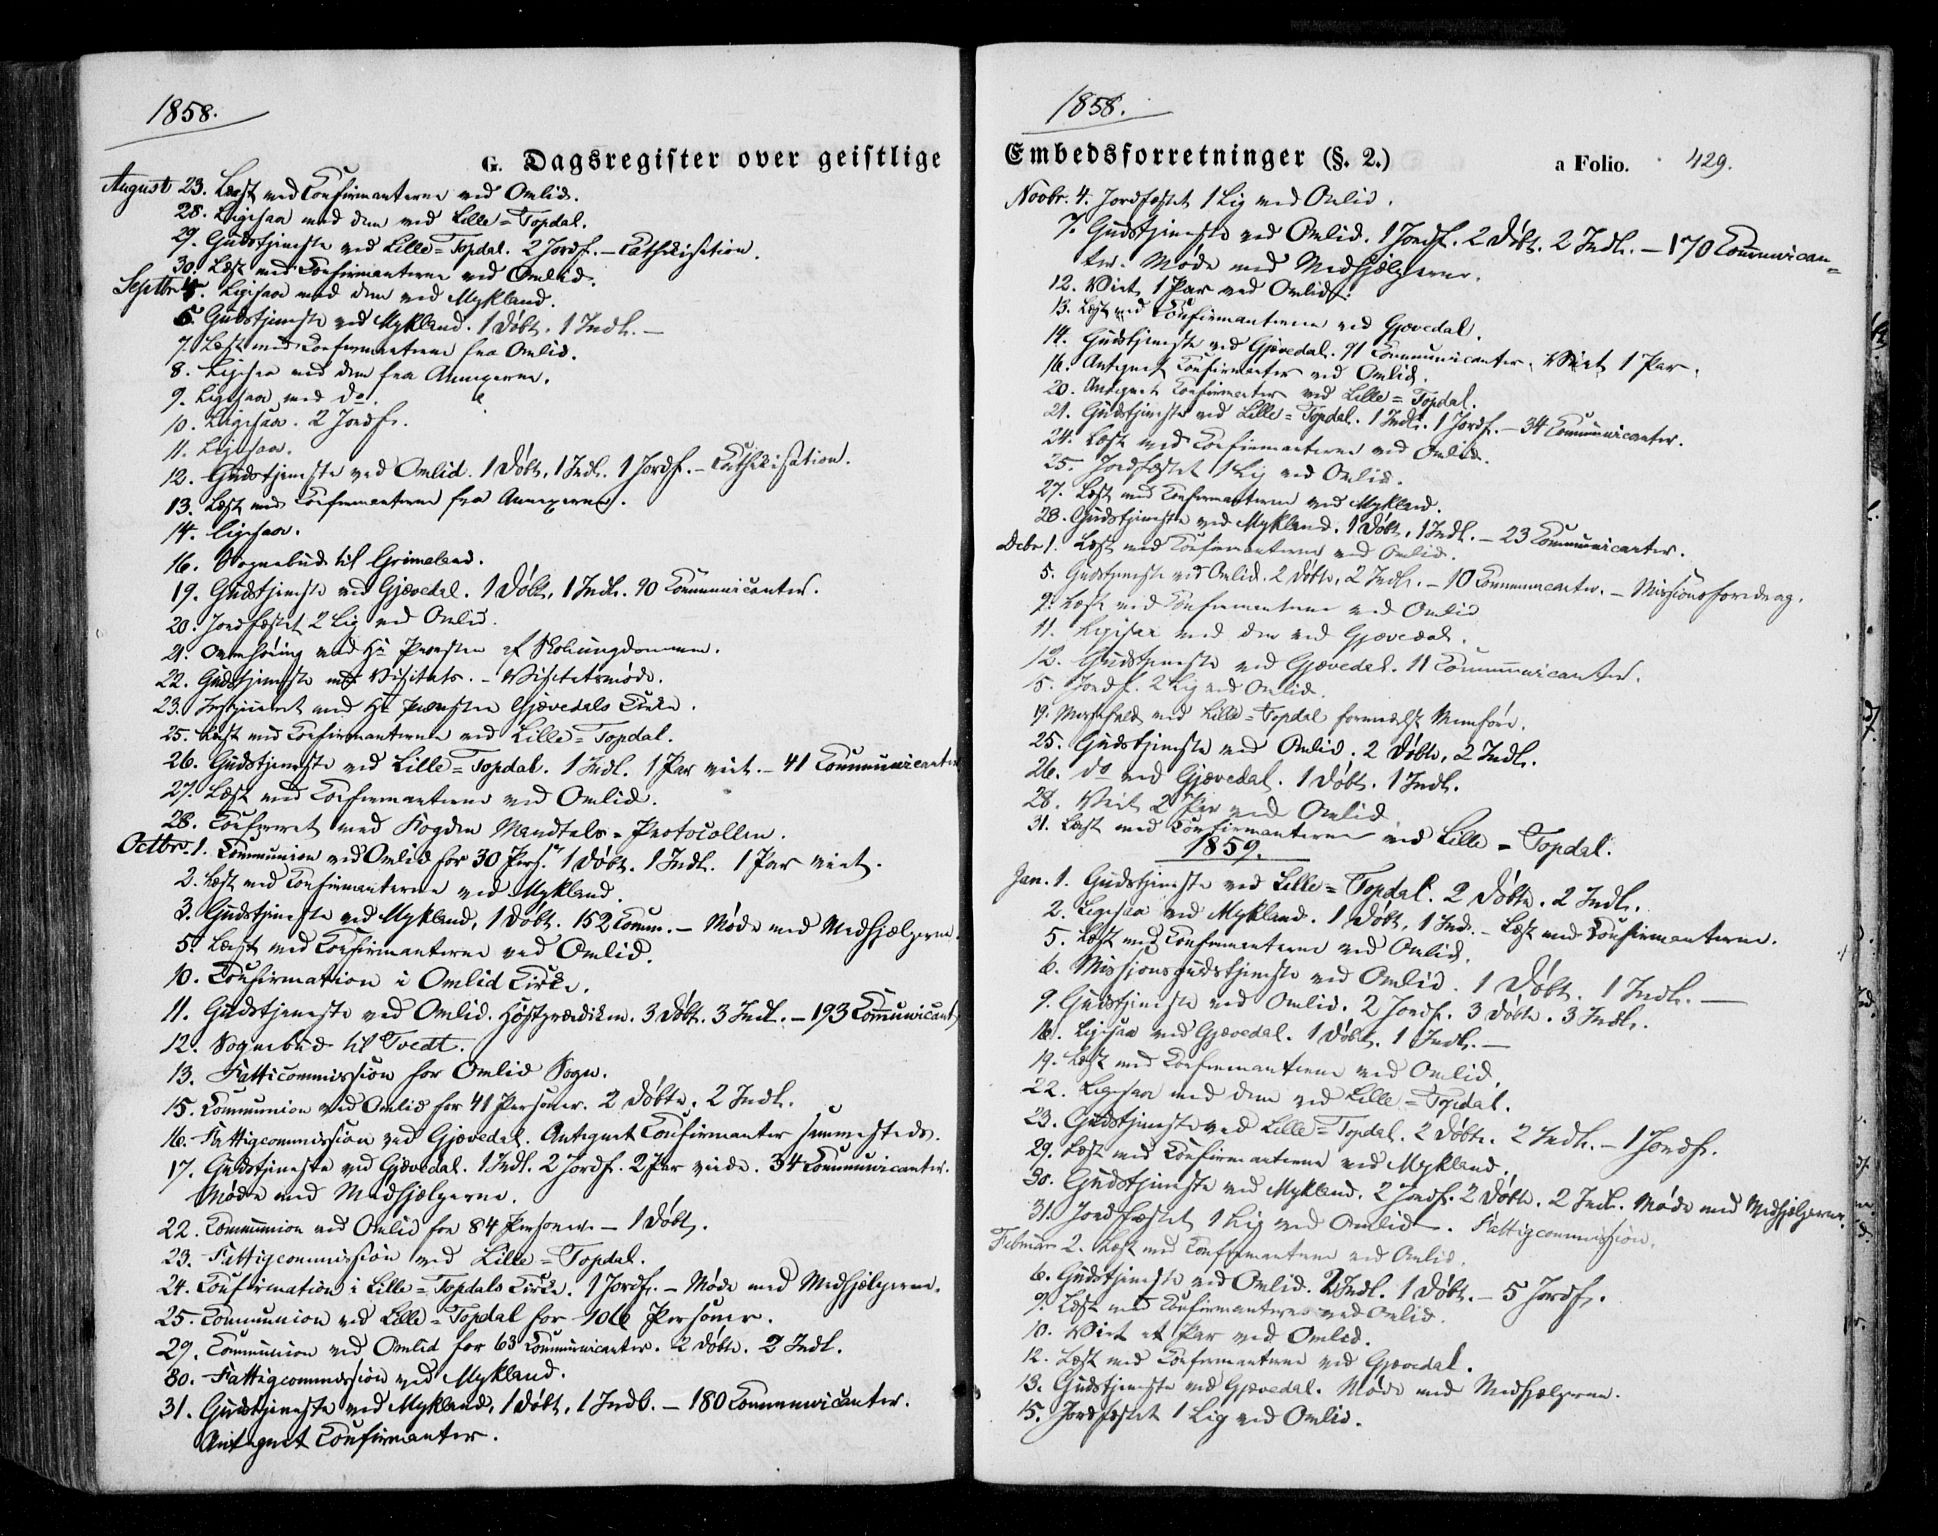 1858.
G. Dagsregister over geistlige
August 23. Læst med Confirmanterne ved Omlid.
28. Ligesaa med dem ved Lille-Topdal.
29. Gudstjeneste ved Lille-Topdal. 2 Jordf. – Cathekisation.
30. Læst med Confirmanterne ved Omlid.
Septbr 4. Ligesaa med dem ved Mykland.
5. Gudstjeneste ved Mykland. 1 Døbt. 1 Indl. –
7. Læst med Confirmanterne fra Omlid.
8. Ligesaa med dem fra Annexerne.
9. Ligesaa med do.
10. Ligesaa. 2 Jordf.
11. Ligesaa.
12. Gudstjeneste ved Omlid. 1 Døbt, 1 Indl. 1 Jordf. – Cathekisation.
13. Læst med Confirmanterne fra Annexerne.
14. Ligesaa.
16. Sognebud til Grimeland.
19. Gudstjeneste ved Gjøvedal. 1 Døbt, 1 Indl. 90 Communicanter.
20. Jordfæstet 2 Lig ved Omlid.
21. Overhøring med Hr Provsten af Skoleungdommen.
22. Gudstjeneste med Visitats. – Visitatsmøde.
23. med Hr Provsten Gjøvedals Kirke.
25. Læst med Confirmanterne ved Lille-Topdal.
26. Gudstjeneste ved Lille-Topdal. 1 Indl. 1 Par viet. – 41 Communicanter
27. Læst med Confirmanterne ved Omlid.
28. Confereret med Fogden Mandtals-Protocollen.
Octbr. 1. Communion ved Omlid for 30 Pers. 1 Døbt. 1 Indl. 1 Par viet.
2. Læst med Confirmanterne ved Mykland.
3. Gudstjeneste ved Mykland, 1 Døbt. 152 Comm. – Møde med Medhjælperne.
5. Læst med Confirmanterne ved Omlid.
10. Confirmation i Omlid Kirke.
11. Gudstjeneste ved Omlid. Høstprædiken. 3 Døbt. 3 Indl. – 193 Communicant
12. Sognebud til Tvedt.
13. Fatticommission for Omlid Sogn.
15. Communion ved Omlid for 41 Personer. 2 Døbte. 2 Indl.
16. Fattigcommission ved Gjøvedal. Antegnet Confirmanter sammesteds.
17. Gudstjeneste ved Gjøvedal. 1 Indl. 2 Jordf. 2 Par viede. 34 Communicanter.
Møde med Medhjælperne.
22. Communion ved Omlid for 84 Personer. – 1 Døbt.
23. Fattigcommission ved Lille-Topdal.
24. Confirmation i Lille-Topdals Kirke. 1 Jordf. – Møde med Medhjælperne.
25. Communion ved Lille-Topdal for 106 Personer.
29. Communion ved Omlid for 63 Communicanter. 2 Døbte. 2 Indl.
30. Fattigcommission ved Mykland.
31. Gudstjeneste ved Mykland, 1 Døbt, 1 Indl. – 180 Communicanter.
Antegnet Confirmanter.
1858.
Embedsforretninger (§. 2.)
a Folio. 429.
Novbr. 4. Jordfæstet 1 Lig ved Omlid.
7. Gudstjeneste ved Omlid. 1 Jordf. 2 Døbt. 2 Indl. – 170 Communican=
ter. Møde med Medhjælperne.
12. Viet 1 Par ved Omlid.
13. Læst med Confirmanterne ved Gjøvedal.
14. Gudstjeneste ved Gjøvedal. 91 Communicanter. Viet 1 Par.
16. Antegnet Confirmanter ved Omlid.
20. Antegnet Confirmanter ved Lille-Topdal.
21. Gudstjeneste ved Lille-Topdal. 1 Indl. 1 Jordf. – 34 Communicanter.
24. Læst med Confirmanterne ved Omlid.
25. Jordfæstet 1 Lig ved Omlid.
27. Læst med Confirmanterne ved Mykland.
28. Gudstjeneste ved Mykland. 1 Døbt, 1 Indl. – 23 Communicanter.
Debr 1. Læst med Confirmanterne ved Omlid.
5. Gudstjeneste ved Omlid. 2 Døbte, 2 Indl. – 10 Communicanter. – Missionsforedrag.
9. Læst med Confirmanterne ved Omlid
11. Ligesaa med dem ved Gjøvedal.
12. Gudstjeneste ved Gjøvedal. 11 Communicanter.
15. Jordf. 2 Lig ved Omlid.
19. Messefald ved Lille-Topdal formedelst Menføre.
25. Gudstjeneste ved Omlid. 2 Døbte, 2 Indl.
26. do ved Gjøvedal. 1 Døbt. 1 Indl.
28. Viet 2 Par ved Omlid.
31. Læst med Confirmanterne ved Lille-Topdal.
1859.
Jan. 1. Gudstjeneste ved Lille-Topdal. 2 Døbte. 2 Indl.
2. Ligesaa ved Mykland. 1 Døbt, 1 Ind. – Læst med Confirmanterne.
5. Læst med Confirmanterne ved Omlid.
6. Missjonsgudstjeneste ved Omlid. 1 Døbt. 1 Indl. –
9. Gudstjeneste ved Omlid. 2 Jordf. 3 Døbte. 3 Indl.
16. Ligesaa ved Gjøvedal. 1 Døbt. 1 Indl. –
19. Læst med Confirmanterne ved Omlid.
22. Ligesaa med dem ved Lille-Topdal.
23. Gudstjeneste ved Lille-Topdal. 2 Døbte. 2 Indl. – 1 Jordf.
29. Læst med Confirmanterne ved Mykland.
30. Gudstjeneste ved Mykland. 2 Jordf. 2 Døbte. 2 Indl. Møde med Medhjælperne.
31. Jordfæstet 1 Lig ved Omlid. Fattigcommission.
Februar 2. Læst med Confirmanterne ved Omlid.
6. Gudstjeneste ved Omlid. 2 Indl. 1 Døbt. – 5 Jordf.
9. Læst med Confirmanterne ved Omlid.
10. Viet et Par ved Omlid.
12. Læst med Confirmanterne ved Gjøvedal.
13. Gudstjeneste ved Gjøvedal. Møde med Medhjælperne.
15. Jordfæstet 1 Lig ved Omlid.